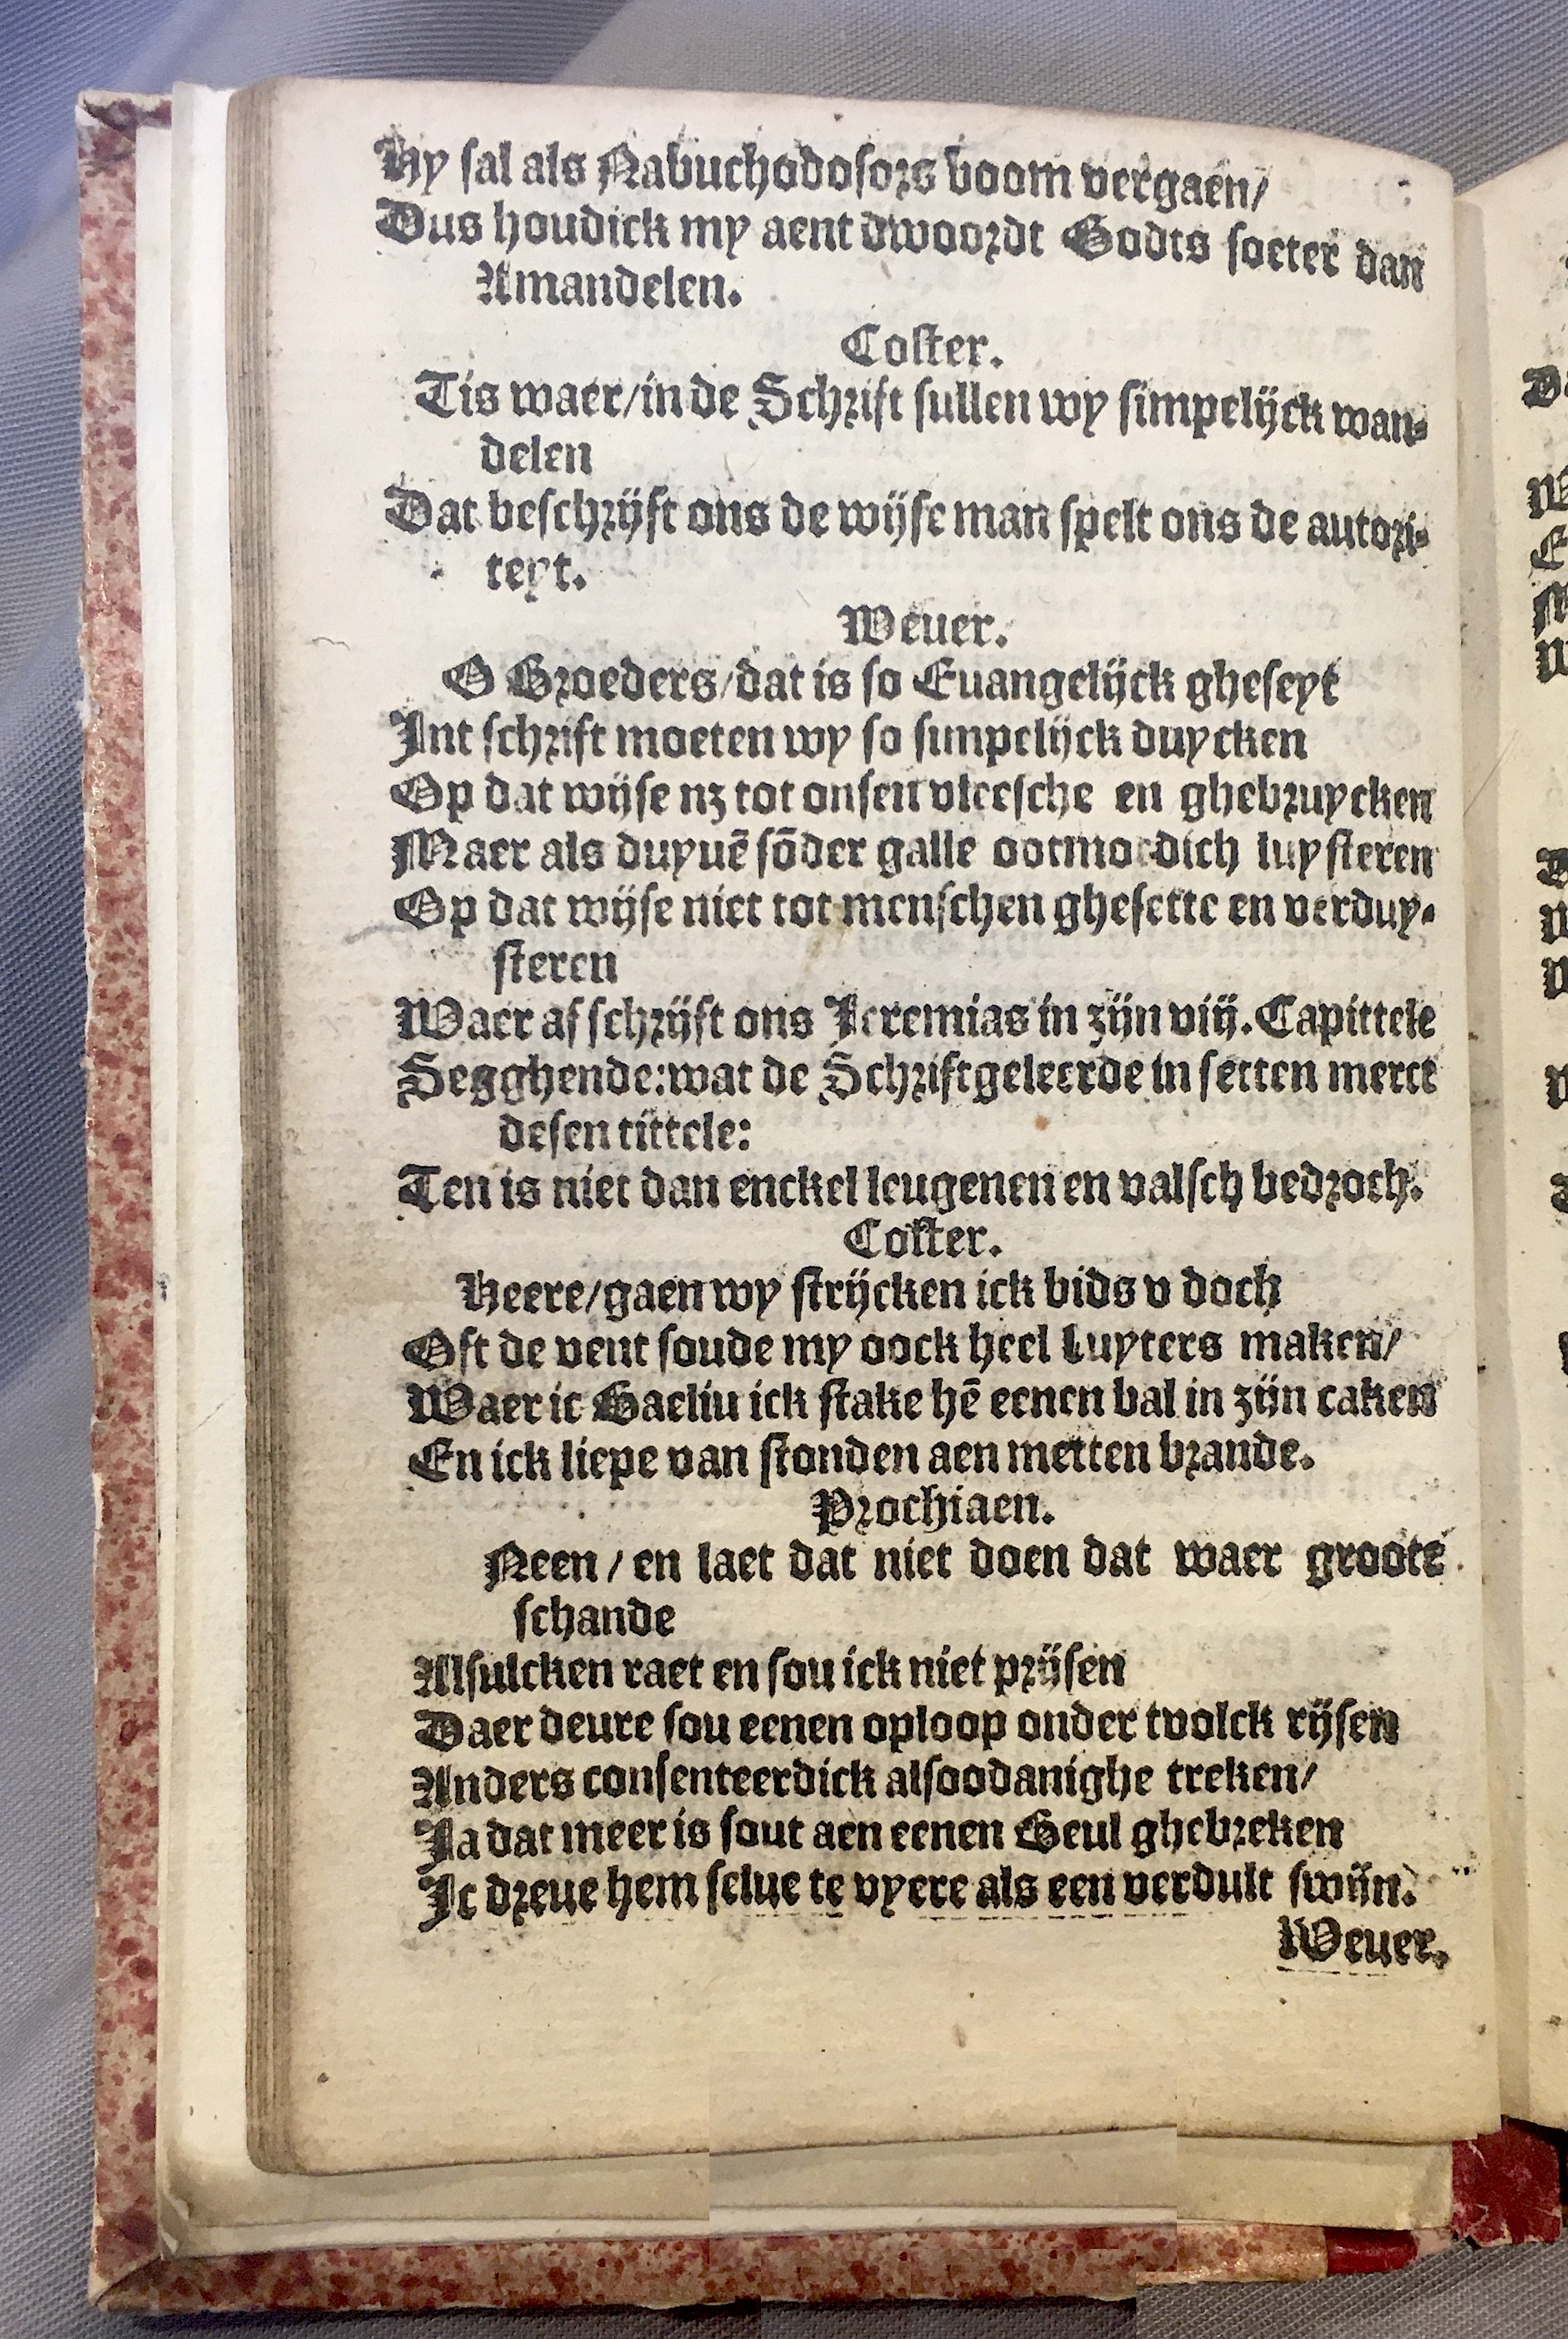 Hy sal als Nabuchodosors boom vergaen/
Dus houdick my aent dwoordt Godts soeter dan
Amandelen.
Coster.
Tis waer/in de Schrift sullen wy simpelijck wan-
delen
Dat beschrijft ons de wijse man spelt ons de autori-
teyt.
Weuer.
O Broeders/dat is so Euangelijck gheseyt
Int schrift moeten wy so simpelijck duycken
Op dat wijse nz tot onsen vleesche en ghebruycken
Maer als duyuē sōder galle ootmoedich luysteren
Op dat wijse niet tot menschen ghesette en verduy-
steren
Waer af schrijft ons Jeremias in zijn viij. Capittele
Segghende: wat de Schriftgeleerde in setten merct
desen tittele:
Ten is niet dan enckel leugenen en valsch bedroch.
Coster.
Heere/gaen wy strijcken ick bids v doch
Oft de vent soude my oock heel Luyters maken/
Waer ic Baeliu ick stake hē eenen bal in zijn caken
En ick liepe van stonden aen metten brande.
Prochiaen.
Neen / en laet dat niet doen dat waer groote
schande
Alsulcken raet en sou ick niet prijsen
Daer deure sou eenen oploop onder tvolck rijsen
Anders consenteerdick alsoodanighe treken/
Ja dat meer is sout aen eenen Beul ghebreken
Ic dreue hem selue te vyere als een verdult swijn.
Weuer.